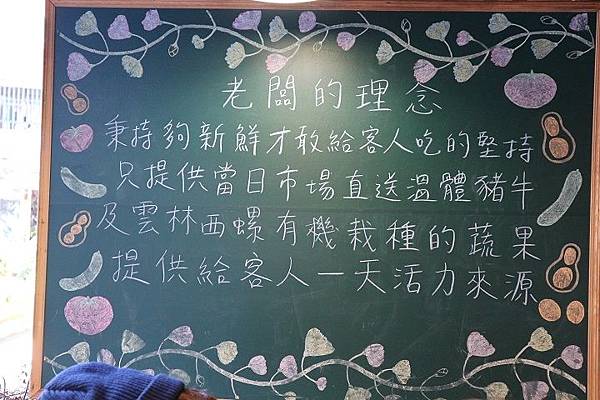 老闆的理念
秉持夠新鮮才敢給客人吃的堅持
只提供當日市場直送溫體豬牛
及雲林西螺有機栽種的蔬果
提供給客人一天活力來源